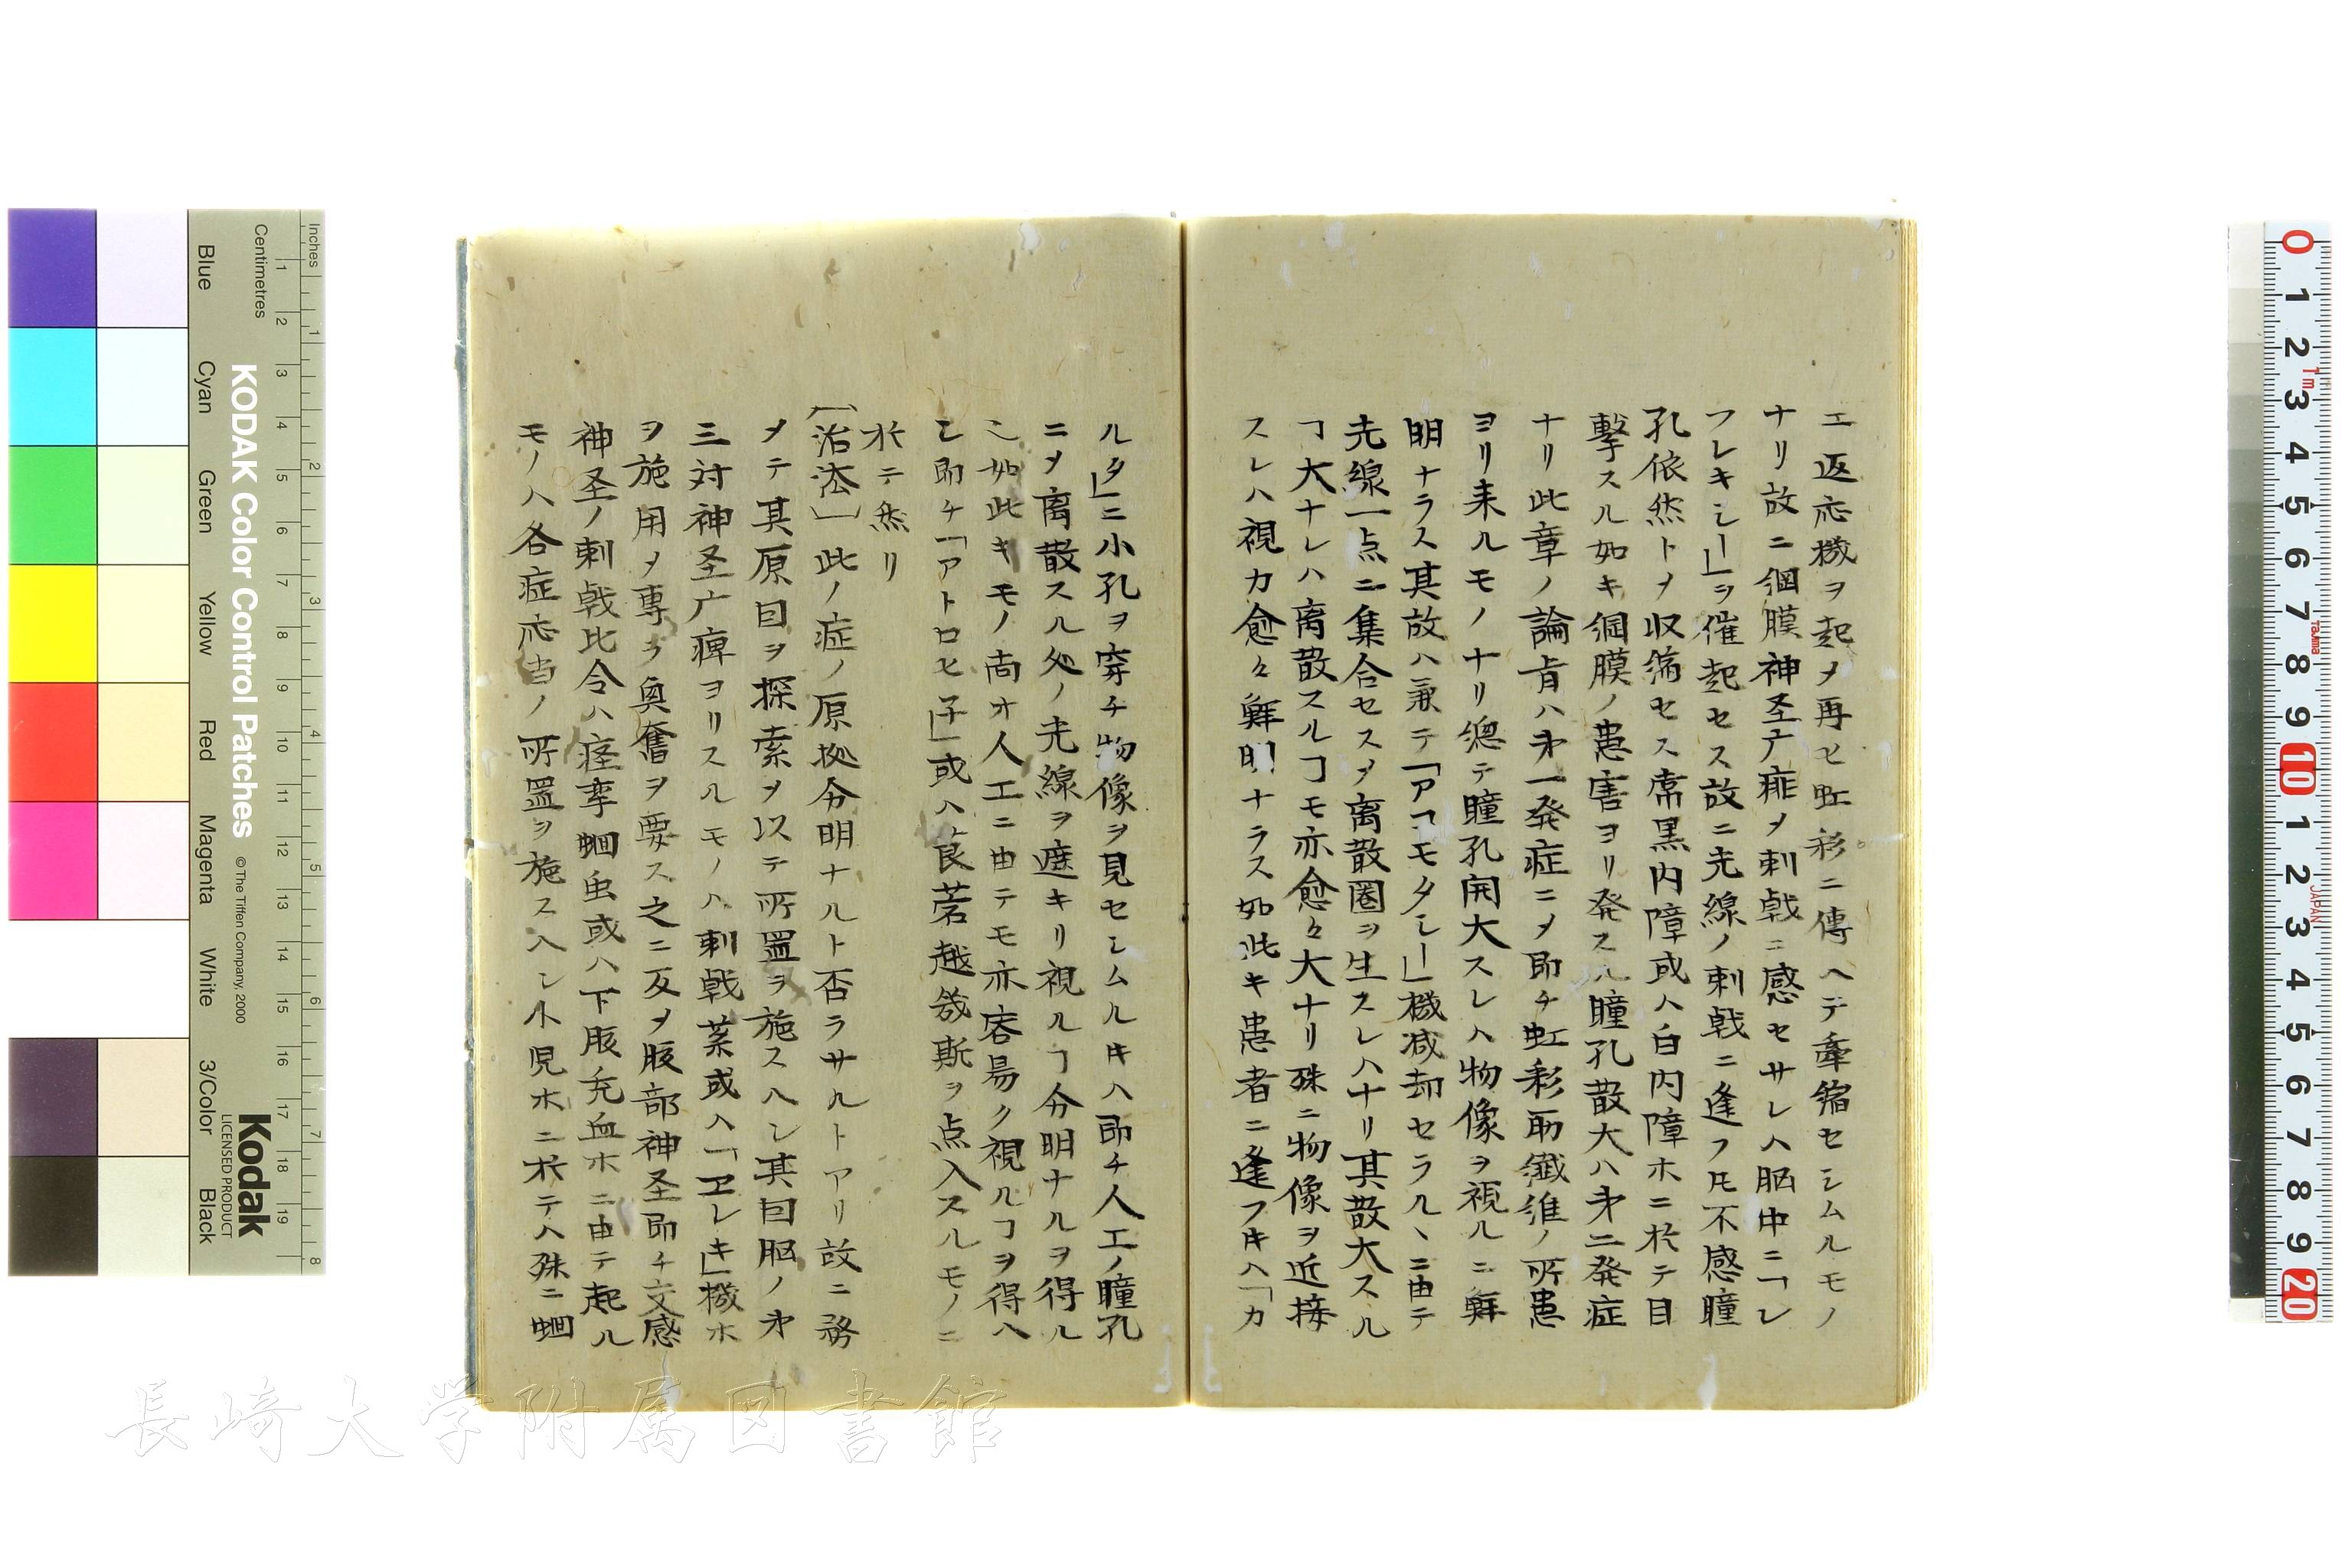 エ返応機ヲ起〆再ヒ虹彩ニ傳ヘテ牽縮セシムルモノ
ナリ故ニ網膜神圣广痱〆刺戟ニ感セサレハ脳中ニ「レ
フレキシー」ヲ催起セス故ニ光線ノ刺戟ニ逢フ𪜈不感瞳
孔依然ト〆収縮セス常黒内障或ハ白内障ホニ於テ目
撃スル如キ網膜ノ患害ヨリ発スル瞳孔散大ハ㐧二発症
ナリ此章ノ論肯ハ㐧一発症ニ〆即チ虹彩両纎維ノ所患
ヨリ来ルモノナリ總テ瞳孔開大スレハ物像ヲ視ルニ鮮
明ナラス其故ハ兼テ「アコモタシー」機減却セラルヽニ由テ
光線一点ニ集合セス〆离散圏ヲ生スレハナリ其散大スル
ヿ大ナレハ离散スルヿモ亦愈々大ナリ殊ニ物像ヲ近接
スレハ視力愈々鮮明ナラス如此キ患者ニ逢フキハ「カ
ルタ」ニ小孔ヲ穿チ物像ヲ見セシムルキハ即チ人工ノ瞳孔
ニ〆离散スル処ノ光線ヲ遮キリ視ルヿ分明ナルヲ得ル
如此キモノ尚ホ人工ニ由テモ亦容易ク視ルヿヲ得ヘ
シ即チ「アトロヒ子」或ハ莨菪越幾斯ヲ点入スルモノニ
於テ然リ
〔治法〕此ノ症ノ原拠分明ナルト否ラサルトアリ故ニ務
メテ其原因ヲ探索〆以テ所置ヲ施スヘシ其因脳ノ㐧
三対神圣广痺ヨリスルモノハ刺戟薬或ハ「ヱレキ」機ホ
ヲ施用〆専ラ奥奮ヲ要ス之ニ反〆腹部神圣即チ交感
神圣ノ刺戟比令ハ痙挛蛔虫或ハ下腹充血ホニ由テ起ル
モノハ各症応当ノ所置ヲ施スヘシ小児ホニ於テハ殊ニ蛔
Inches
Centimetres
KODAK Color Control Patches
©The Tiffen Company, 2000
Kodak
LICENSED PRODUCT
Blue
Cyan
Green
Yellow
Red
Magenta
White
3/Color
Black
1 2 3 4 5 6 7 8
1 2 3 4 5 6 7 8 9 10 11 12 13 14 15 16 17 18 19
0 1 2 3 4 5 6 7 8 9 10 1 2 3 4 5 6 7 8 9 20
JAPAN
長崎大学附属図書館